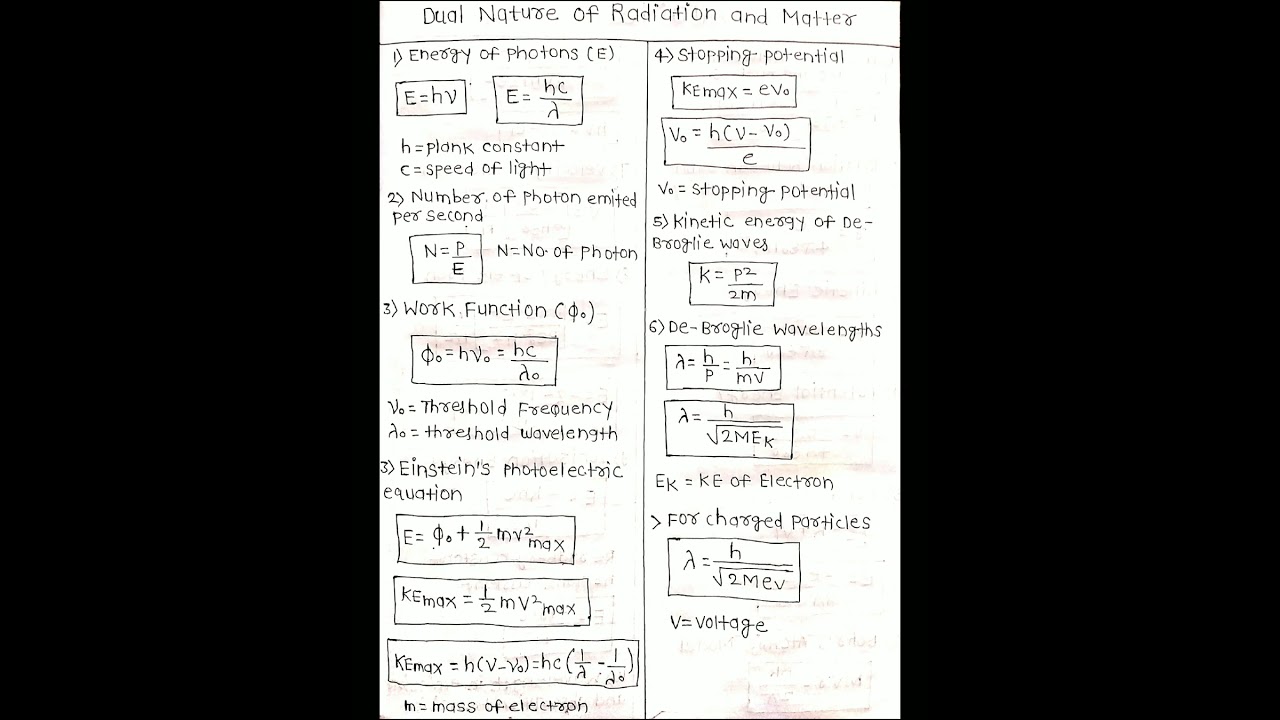 Dual Nature of Radiation and Matter
1) Energy of photons (E)
E=hν E= hc/λ
h=plank constant
c=speed of light
2) Number of photon emited
per second
N=P/E N=No. of photon
3) Work Function (ϕ₀)
ϕ₀=hν₀=hc/λ₀
ν₀=Threshold Frequency
λ₀=threshold wavelength
3) Einstein's photoelectric
equation
E= ϕ₀+½mv²max
KEmax=½mv²max
KEmax=h(ν-ν₀)=hc(1/λ-1/λ₀)
m=mass of electron
4) Stopping potential
KEmax=eV₀
V₀=h(ν-ν₀)/e
V₀=stopping potential
5) Kinetic energy of De-
Broglie waves
K=p2/2m
6) De-Broglie wavelengths
λ=h/p=h/mv
λ=h/√2MEK
EK=KE of Electron
> For charged particles
λ=h/√2Mev
V=voltage